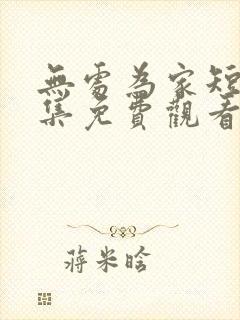 無處為家短
集免費觀看
蔣米晗